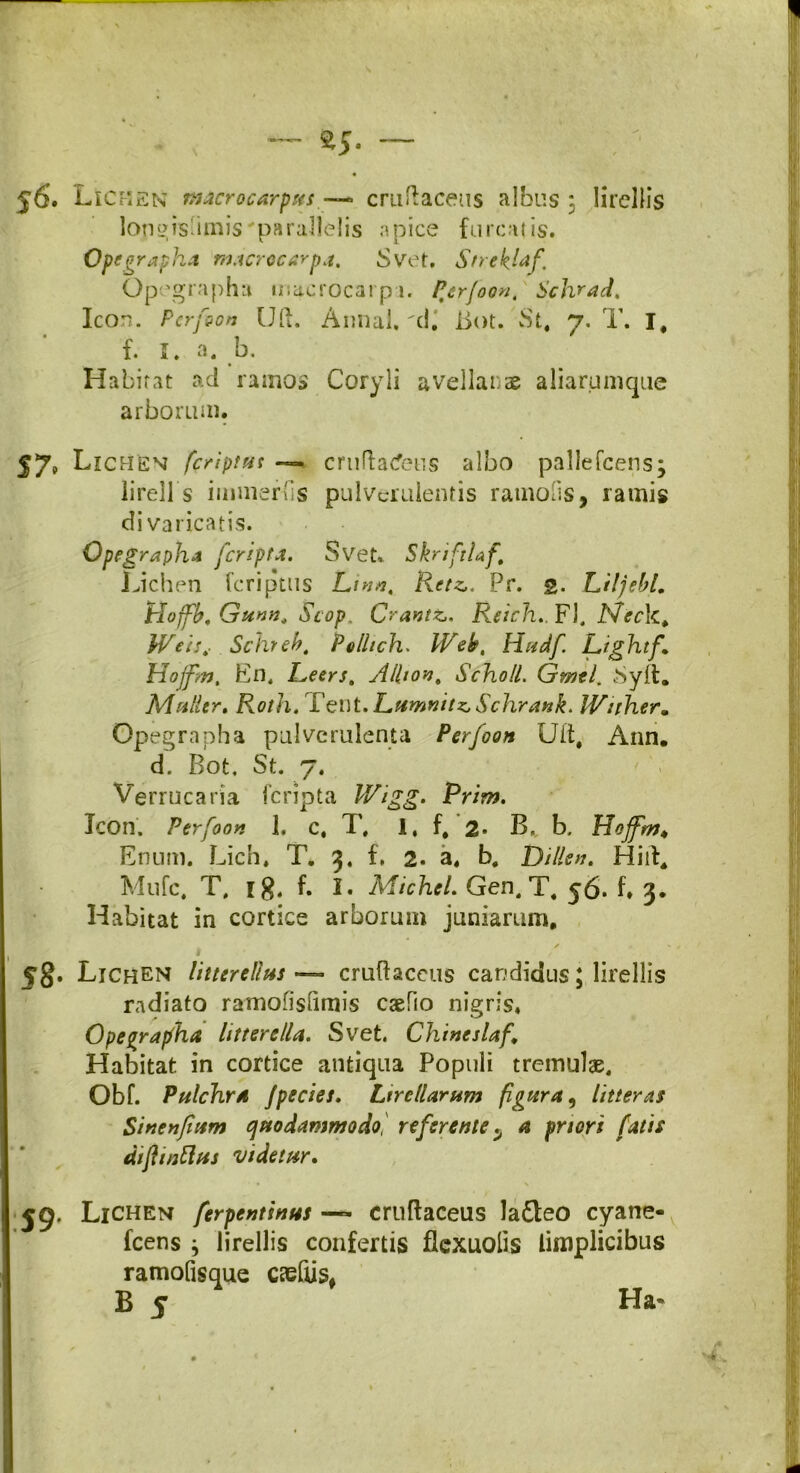 — 25. —
56. LICHEN macrocarpus — cruſtaceus albus; lirellis
longisſimis parallelis apice furcatis.
Opegrapha macrocarpa. Svet. Streklaf.
Opegrapha macrocarpa. Perſoon. Schrad.
Icon. Perſoon Uſt. Annal. d. Bot. St. 7. T. I.
f. I. a. b.
Habitat ad ramos Coryli avellanæ aliarumque
arborum.
57. LICHEN ſcriptus — cruſtaceus albo palleſcens;
lirellis immerſis pulverulentis ramoſis, ramis
divaricatis.
Opegrapha ſcripta. Svet. Skriftlaf.
Lichen ſcriptus Linn. Retz. Pr. 2. Liljebl.
Hoffb. Gunn. Scop. Crantz. Reich. Fl. Neck.
Weis. Schreb. Pollich. Web. Hudſ. Lightf.
Hoffm. En. Leers. Allion. Scholl. Gmel. Syſt.
Muller. Roth. Tent. Lumnitz Schrank. Wither.
Opegrapha pulverulenta Perſoon Uſt. Ann.
d. Bot. St. 7.
Verrucaria ſcripta Wigg. Prim.
Icon. Perſoon l. c. T. 1. f. 2. B. b. Hoffm.
Enum. Lich. T. 3. f. 2. a. b. Dillen. Hiſt.
Muſc. T. 18. f. I. Michel. Gen. T. 56. f. 3.
Habitat in cortice arborum juniarum.
58. LICHEN litterellus — cruſtaceus candidus; lirellis
radiato ramoſisſimis cæſio nigris.
Opegrapha litterella. Svet. Chineslaf.
Habitat in cortice antiqua Populi tremulæ.
Obſ. Pulchra ſpecies. Lirellarum figura, litteras
Sinenſium quodammodo referente, a priori ſatis
diſtinctus videtur.
59. LICHEN ſerpentinus — cruſtaceus lacteo cyane-
ſcens; lirellis confertis flexuoſis ſimplicibus
ramoſisque cæſiis,
B 5 Ha-